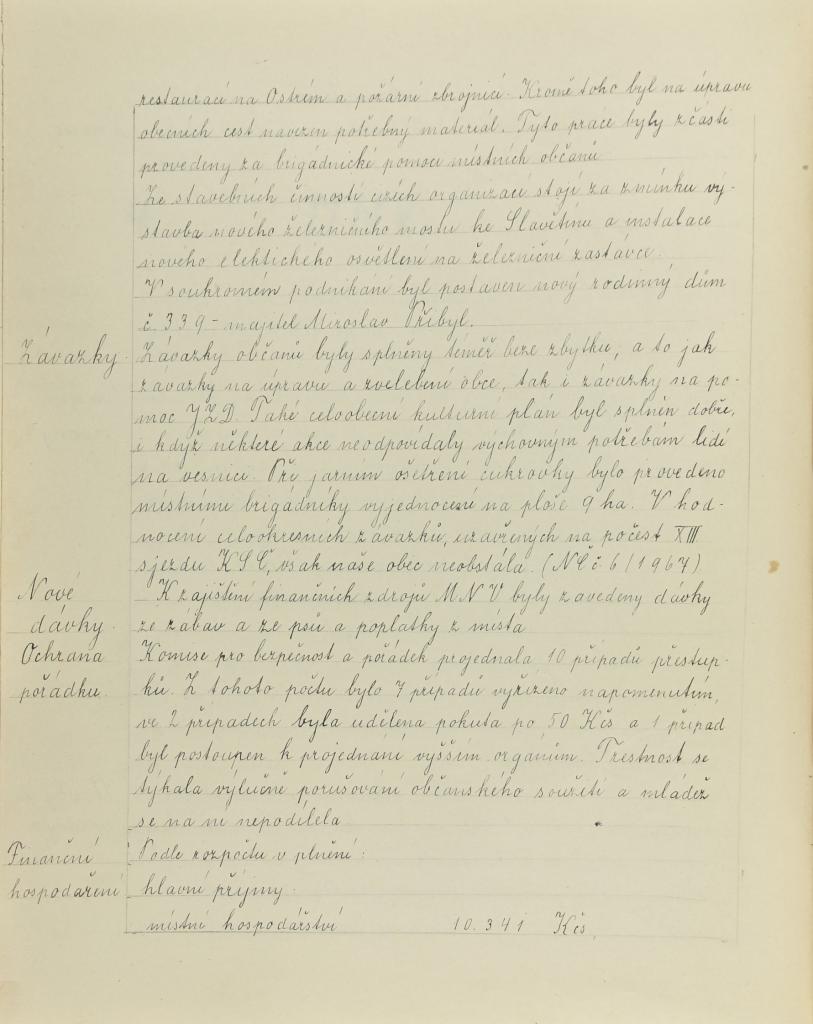 restaurací na Ostrém a požární zbrojnicí. Kromě toho byl na úpravu
obecních cest navezen potřebný materiál. Tyto práce byly zčásti
provedeny za brigádnické pomoci místních občanů
Ze stavebních činností cizích organizací stojí za zmínku vý-
stavba nového železničního mostu ke Slavětínu a instalace
nového elektického osvětlení na železniční zastávce.
V soukromém podnikání byl postaven nový rodinný dům
č. 339 - majitel Miroslav Přibyl.
Závazky
Závazky občanů byly splněny téměř beze zbytku, a to jak
závazky na úpravu a zvelebení obce, tak i závazky na po-
moc JZD. Také celoobecní kulturní plán byl splněn dobře,
i když některé akce neodpovídaly výchovným potřebám lidí
na vesnici. Při jarním ošetření cukrovky bylo provedeno
místními brigádníky vyjednocení na ploše 9 ha. V hod-
nocení celookresních závazků, uzavřených na počest XIII
sjezdu KSČ, však naše obec neobstála. (NČ č 6/1967)
Nové
dávky.
K zajištění finančních zdrojů MNV byly zavedeny dávky
ze zábav a ze psů a poplatky z místa
Ochrana
pořádku.
Komise pro bezpečnost a pořádek projednala 10 případů přestup-
ků. Z tohoto počtu bylo 7 případů vyřízeno napomenutím,
ve 2 případech byla udělena pokuta po 50 Kčs a 1 případ
byl postoupen k projednání vyšším orgánům. Trestnost se
týkala výlučně porušování občanského soužití a mládež
se na ní nepodílela
Finanční
hospodaření
Podle rozpočtu v plnění:
hlavní příjmy:
místní hospodářství 10.341 Kčs,